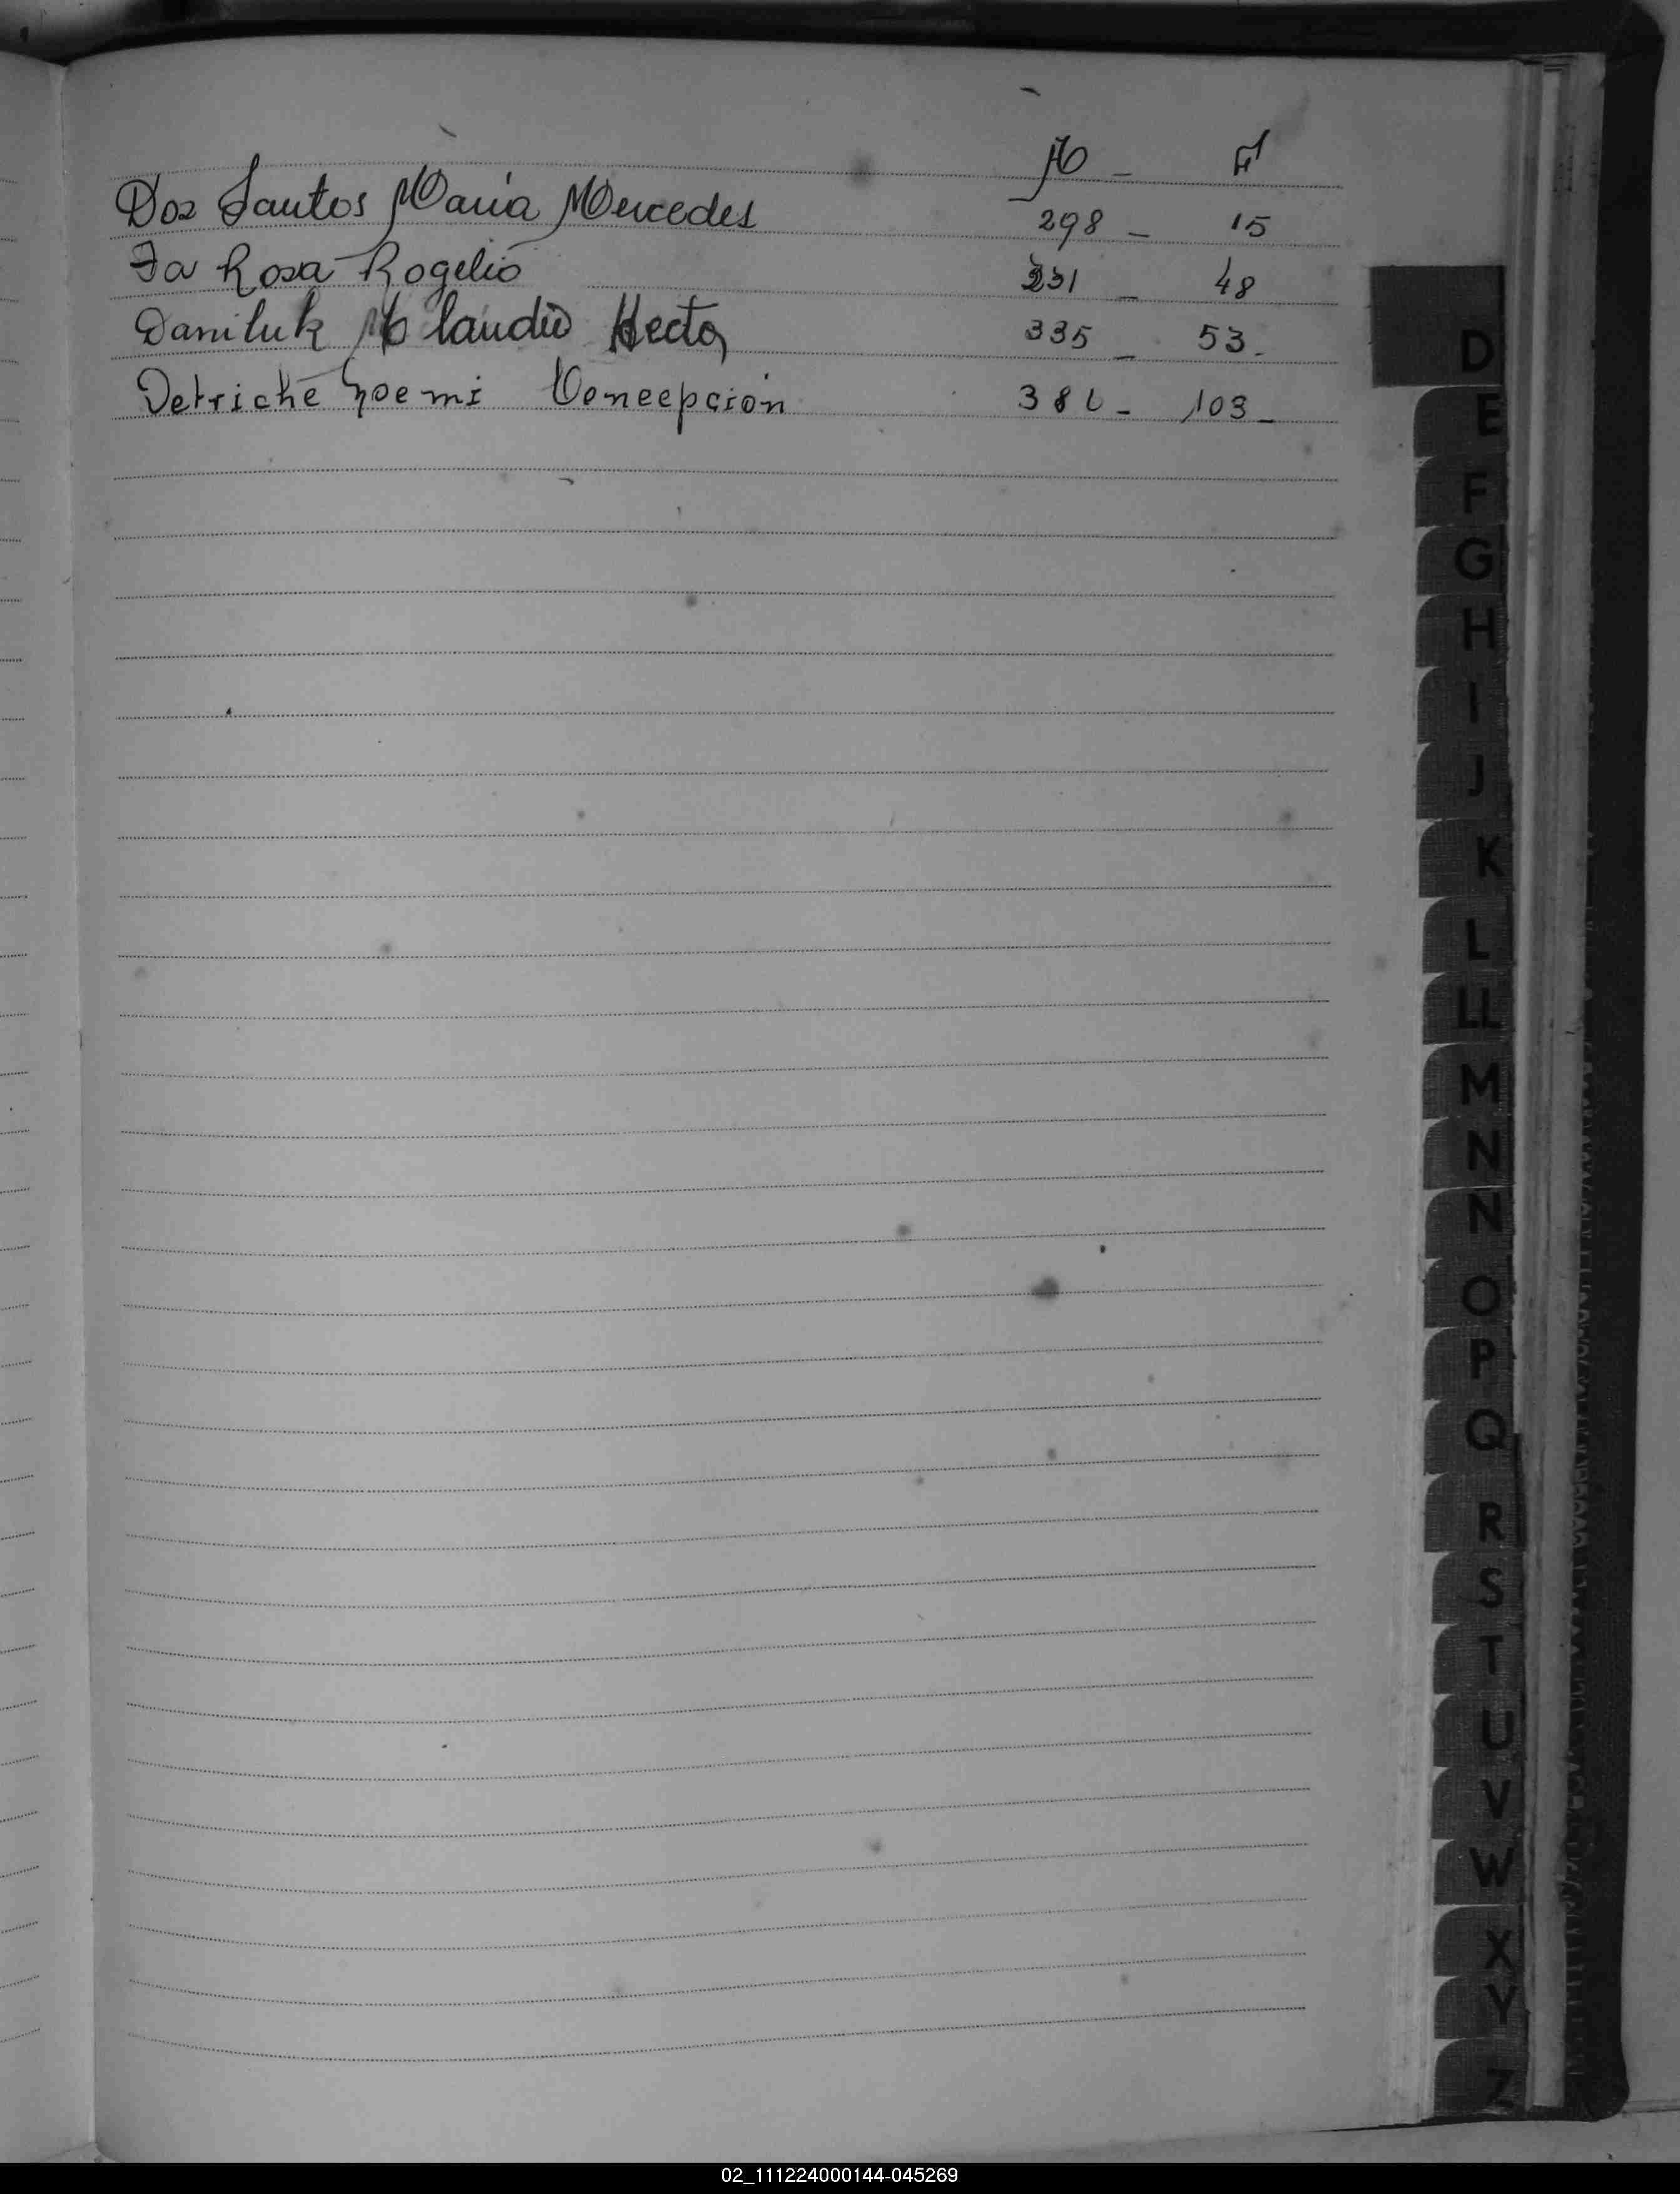 Dos Santos María Mercedes 298 - 15
Da Rosa Rogelio 231 - 48
Daniluk Claudio Hector 335 - 53-
Detriche Noemi Concepción 386 - 103-
D
E
F
G
H
I
J
K
L
LL
M
N
Ñ
O
P
Q
R
S
T
U
V
W
X
Y
Z
02_111224000144-045269